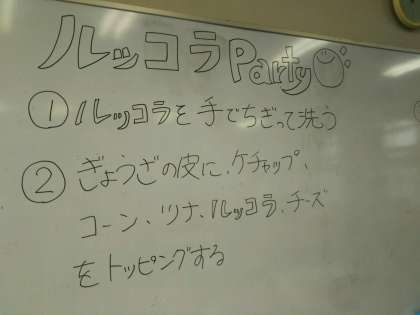 ルッコラParty
① ルッコラを手でちぎって洗う
② ぎょうざの皮に、ケチャップ、
コーン、ツナ、ルッコラ、チーズ
をトッピングする